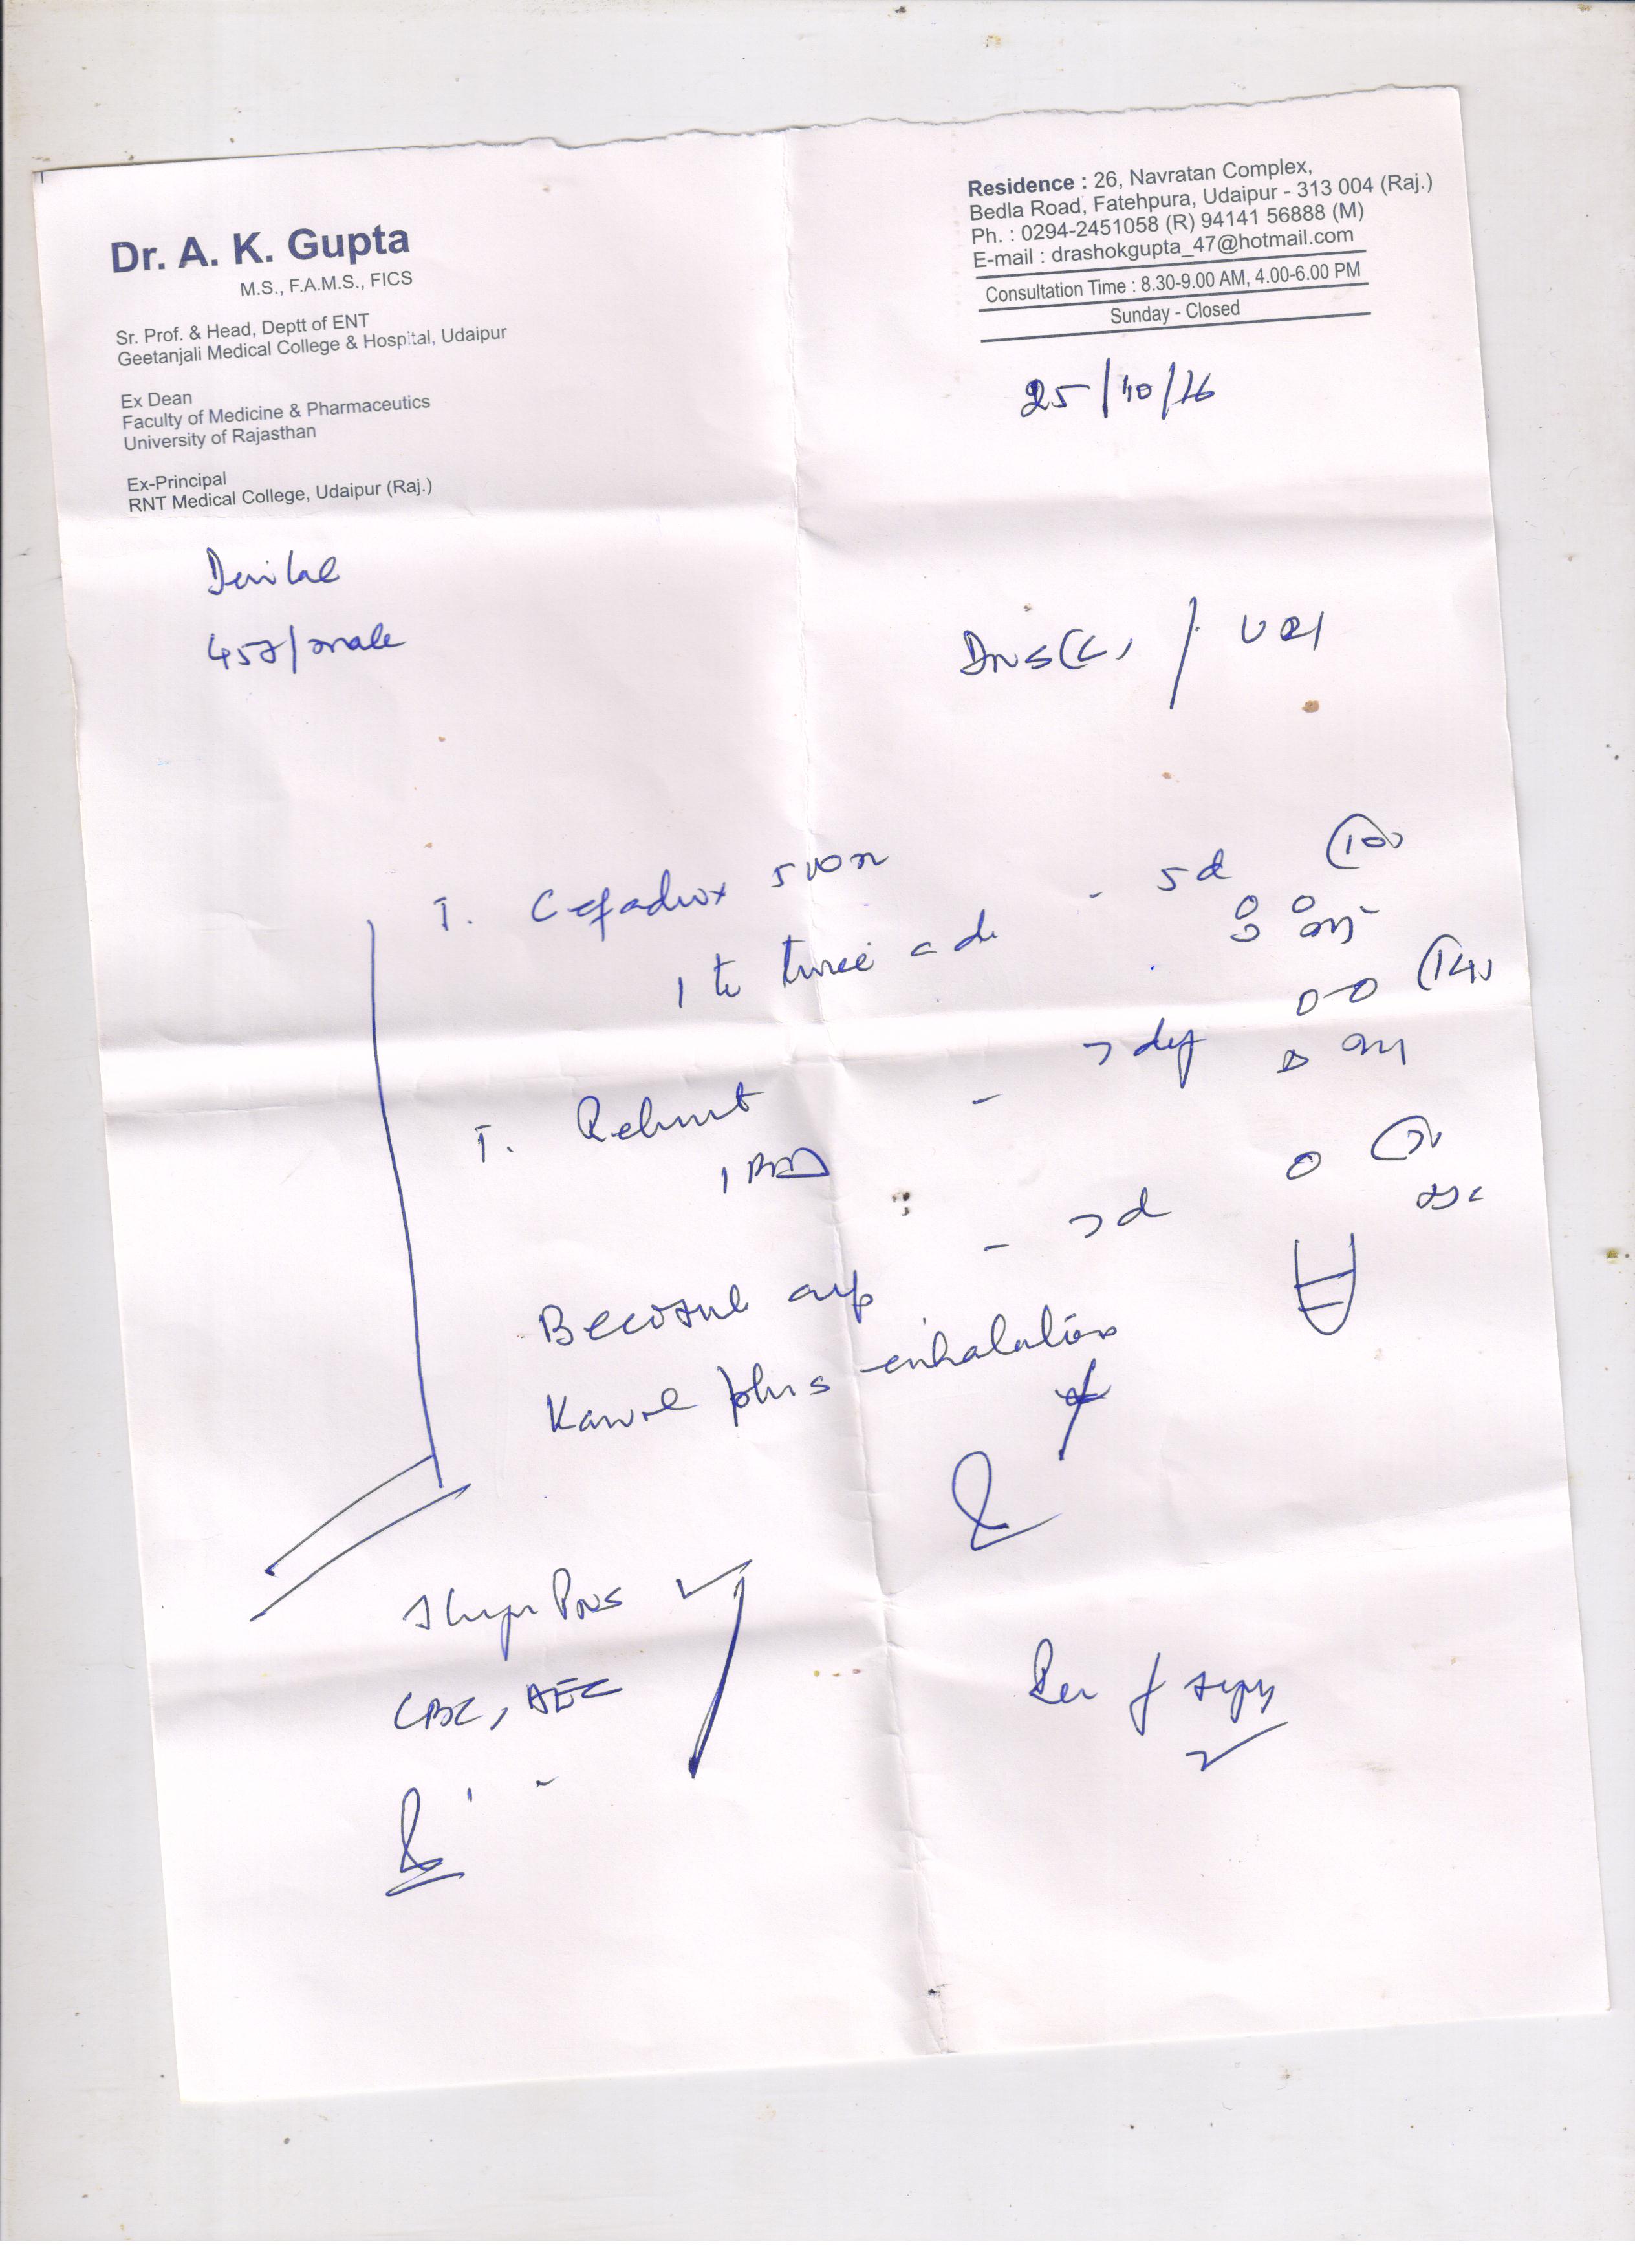 Dr. A. K. Gupta
M.S., F.A.M.S., FICS
Sr. Prof. & Head, Deptt of ENT
Geetanjali Medical College & Hospital, Udaipur
Ex Dean
Faculty of Medicine & Pharmaceutics
University of Rajasthan
Ex-Principal
RNT Medical College, Udaipur (Raj.)
Residence : 26, Navratan Complex,
Bedla Road, Fatehpura, Udaipur - 313 004 (Raj.)
Ph. : 0294-2451058 (R) 94141 56888 (M)
E-mail : drashokgupta_47@hotmail.com
Consultation Time : 8.30-9.00 AM, 4.00-6.00 PM
Sunday - Closed
25/10/16
Devilal
45y/male
DNS(L) / URI
T. Cefadrox 500 - 5d (10)
1 twice a d
T. - 7 day (14)
1 BD
Becosule cap - 7d (7)
Karvol plus inhalation
PNS
CBC, AEC